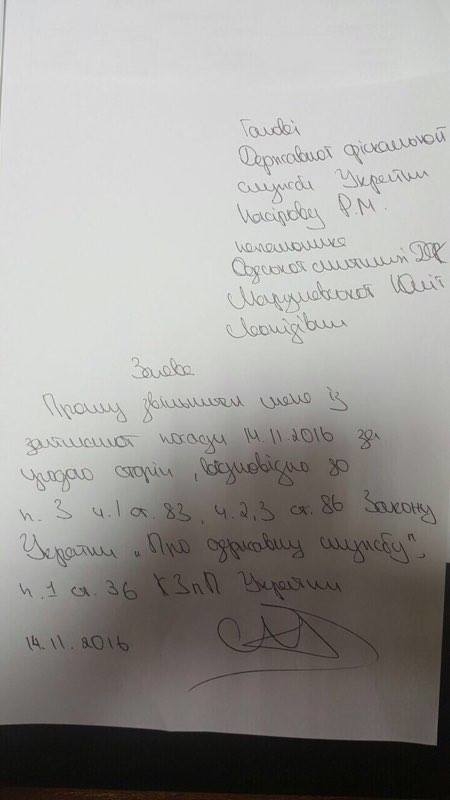 Голові
Державної фіскальної
служби України
Насірову Р.М.
начальника
Одеської митниці ДФС
Марушевської Юлії
Леонідівни
Заява
Прошу звільнити мене із
займаної посади 14.11.2016 за
угодою сторін, відповідно до
п. 3 ч.1 ст. 83, ч.2,3 ст. 86 Закону
України „Про державну службу",
п.1 ст. 36 КЗпП України
14.11.2016